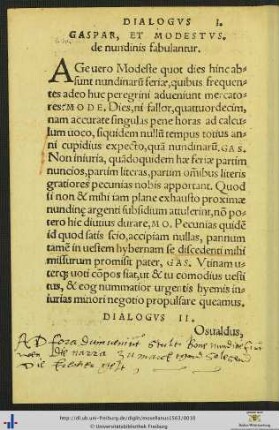 DIALOGVS I.
GASPAR, ET MODESTVS.
de nundinis fabulantur.
AGeuero Modeste quot dies hinc ab-
sunt nundinarũ feriæ, quibus frequen
tes adeo huc peregrini adueniunt mercato-
res? MODE. Dies, ni fallor, quatuordecim,
nam accurate singulas pene horas ad calcu-
lum uoco, siquidem nullũ tempus totius an-
ni cupidius expecto, quã nundinarũ. GAS.
Non iniuria, quãdoquidem hæ feriæ partim
nuncios, partim literas, partim om̃ibus literis
gratiores pecunias nobis apportant. Quod
si non & mihi iam plane exhausto proximæ
nundinę argenti subsidium attulerint, nõ po
tero hic diutius durare, MO. Pecunias quidẽ
id quod satis scio, accipiam nullas, pannum
tamẽ in uestem hybernam se discedenti mihi
missurum promisit pater, GAS. Vtinam u-
terq; uoti cõpos fiat, ut & tu comodius uesti
tus, & ego nummatior urgentis hyemis in-
iurias minori negotio propulsare queamus.
DIALOGVS II.
Osualdus,
http://dl.ub.uni-freiburg.de/diglit/
© Universitätsbibliothek Freiburg